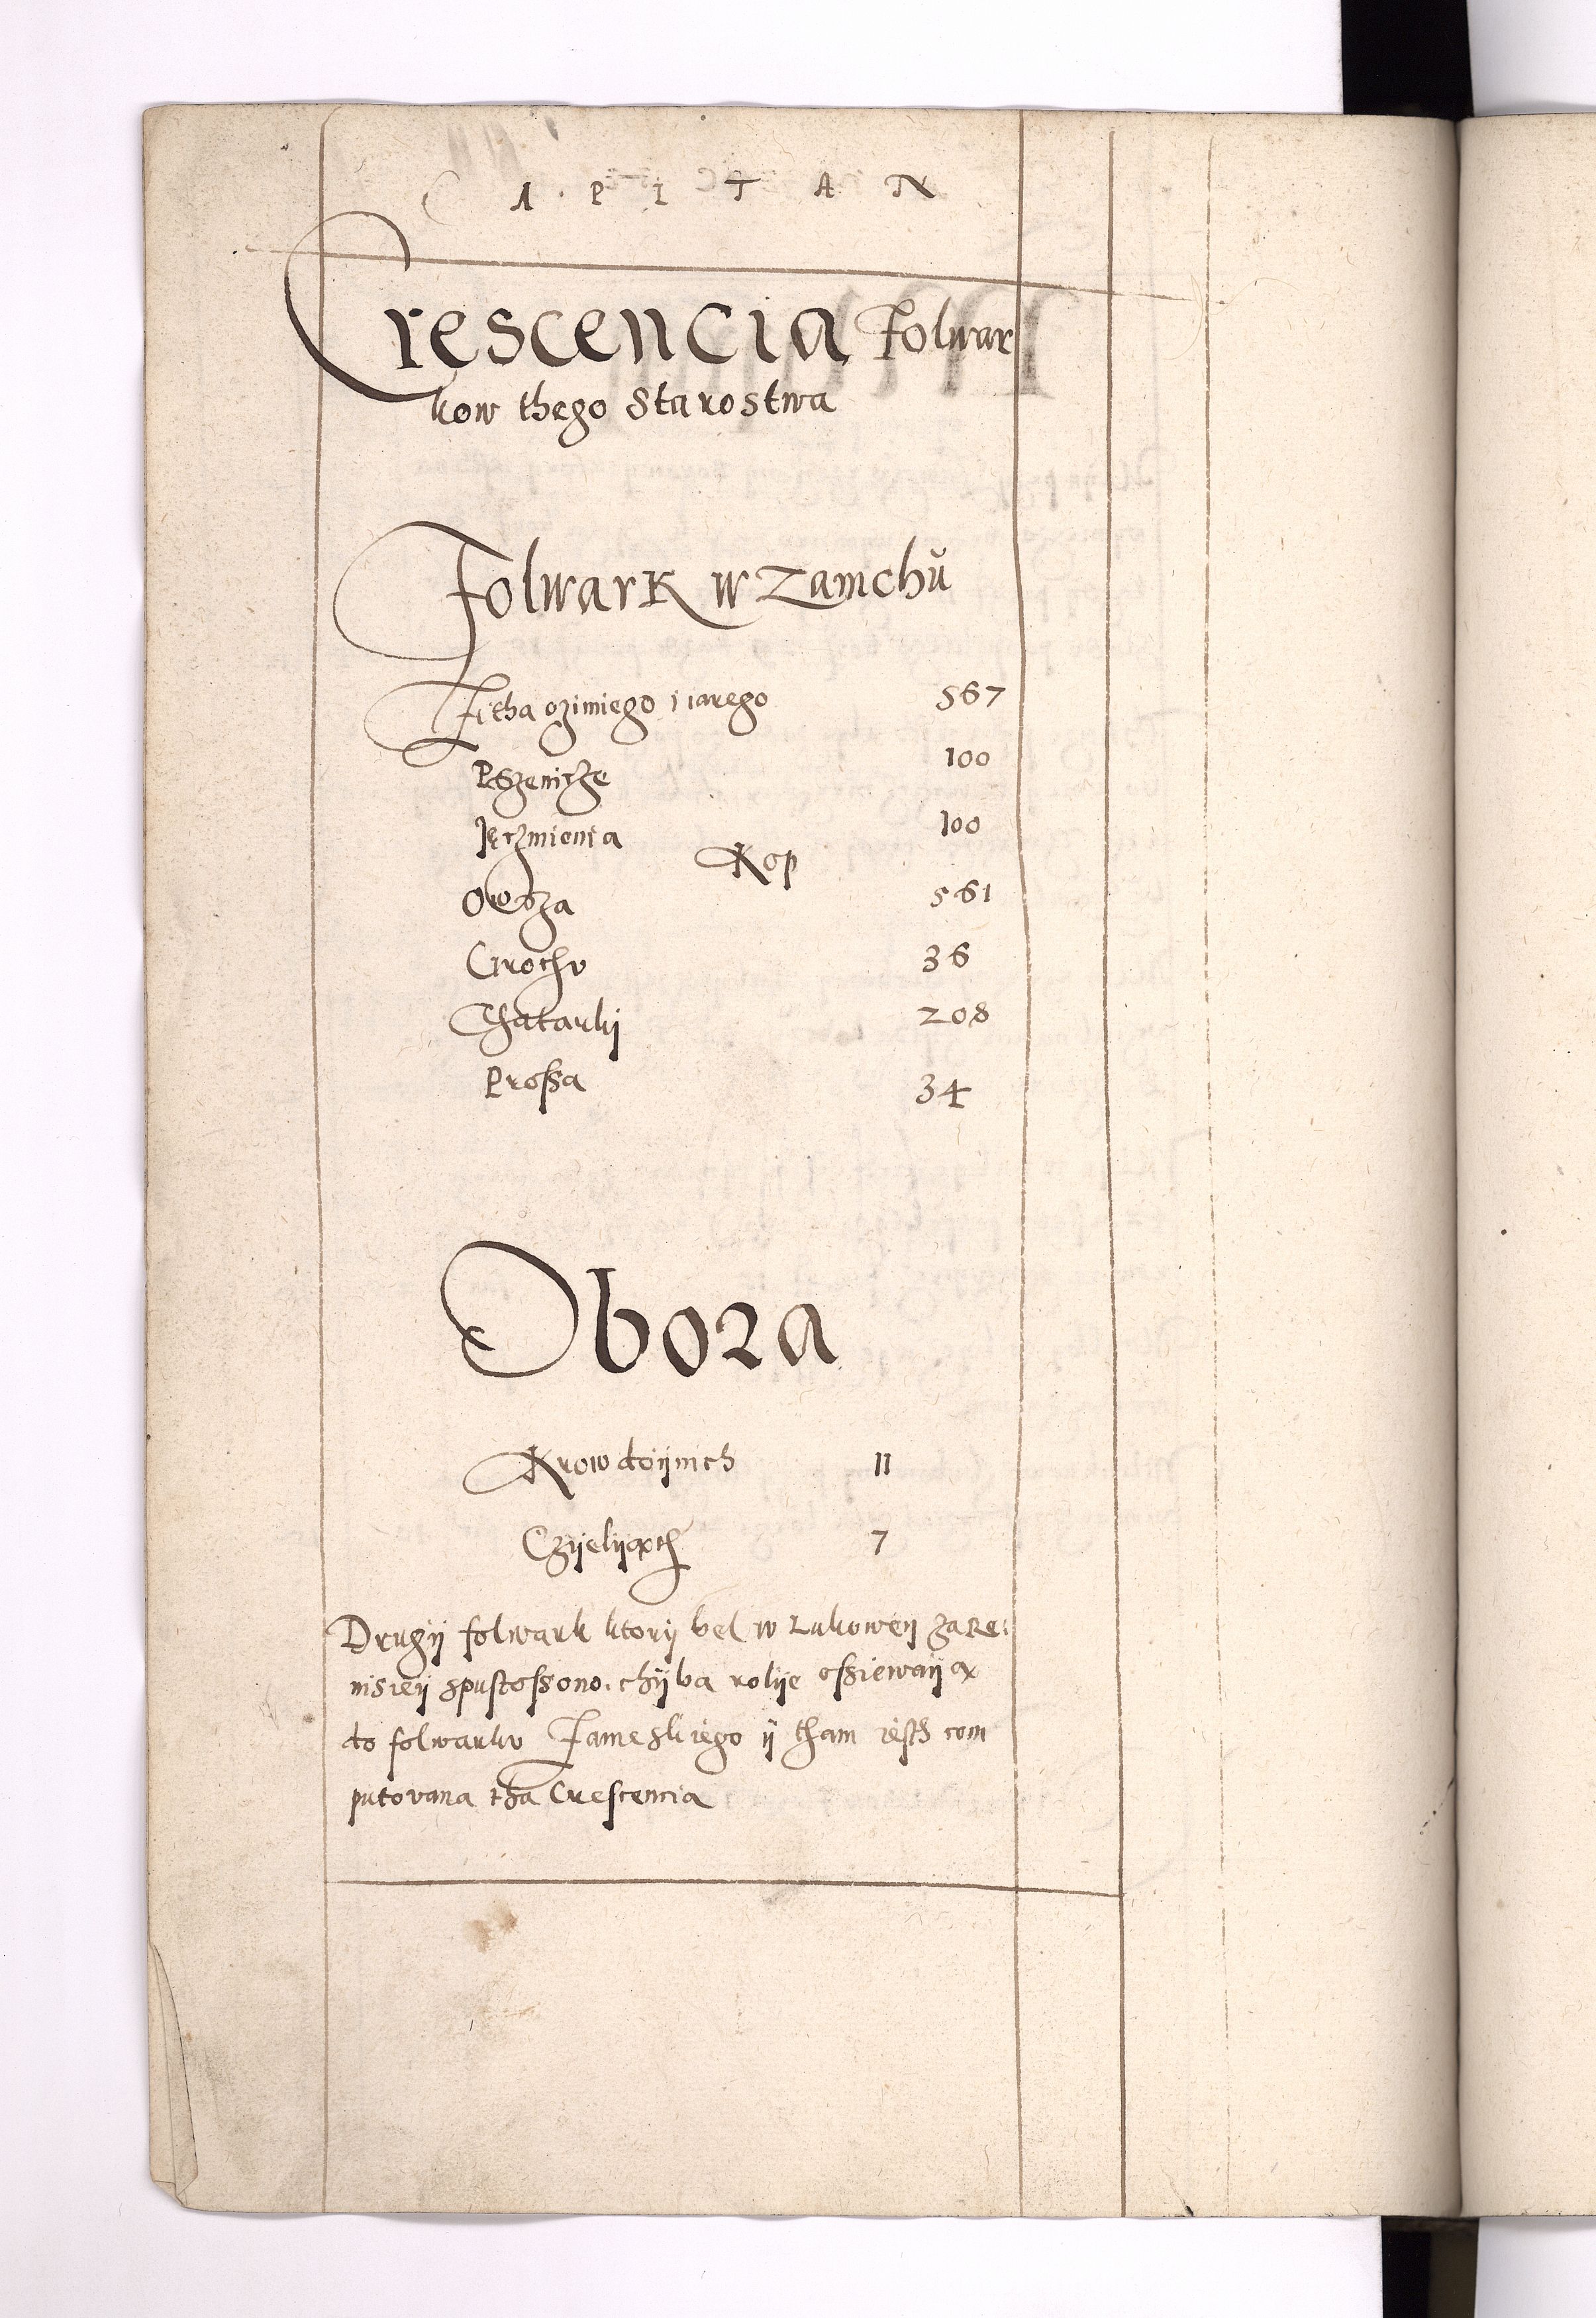 C A P I T A N
Crescencia Folwar
kow thego Starostwa
Folwark w Zamchŭ
Zitha ozimiego i iarego 567
Pszenicze 100
Jęczmienia 100
Kop
Owsza 561
Grochv 36
Thatarkj 208
Prossa 34
Obora
Krow doijnich 11
Czijelijąth 7
Drugij folwark ktorij bel w Lukoweij
nisieij spustossono. chijba rolije ossiewaija
do folwarkv Zameskiego ij tham iesth com
putovana tha Crescencia